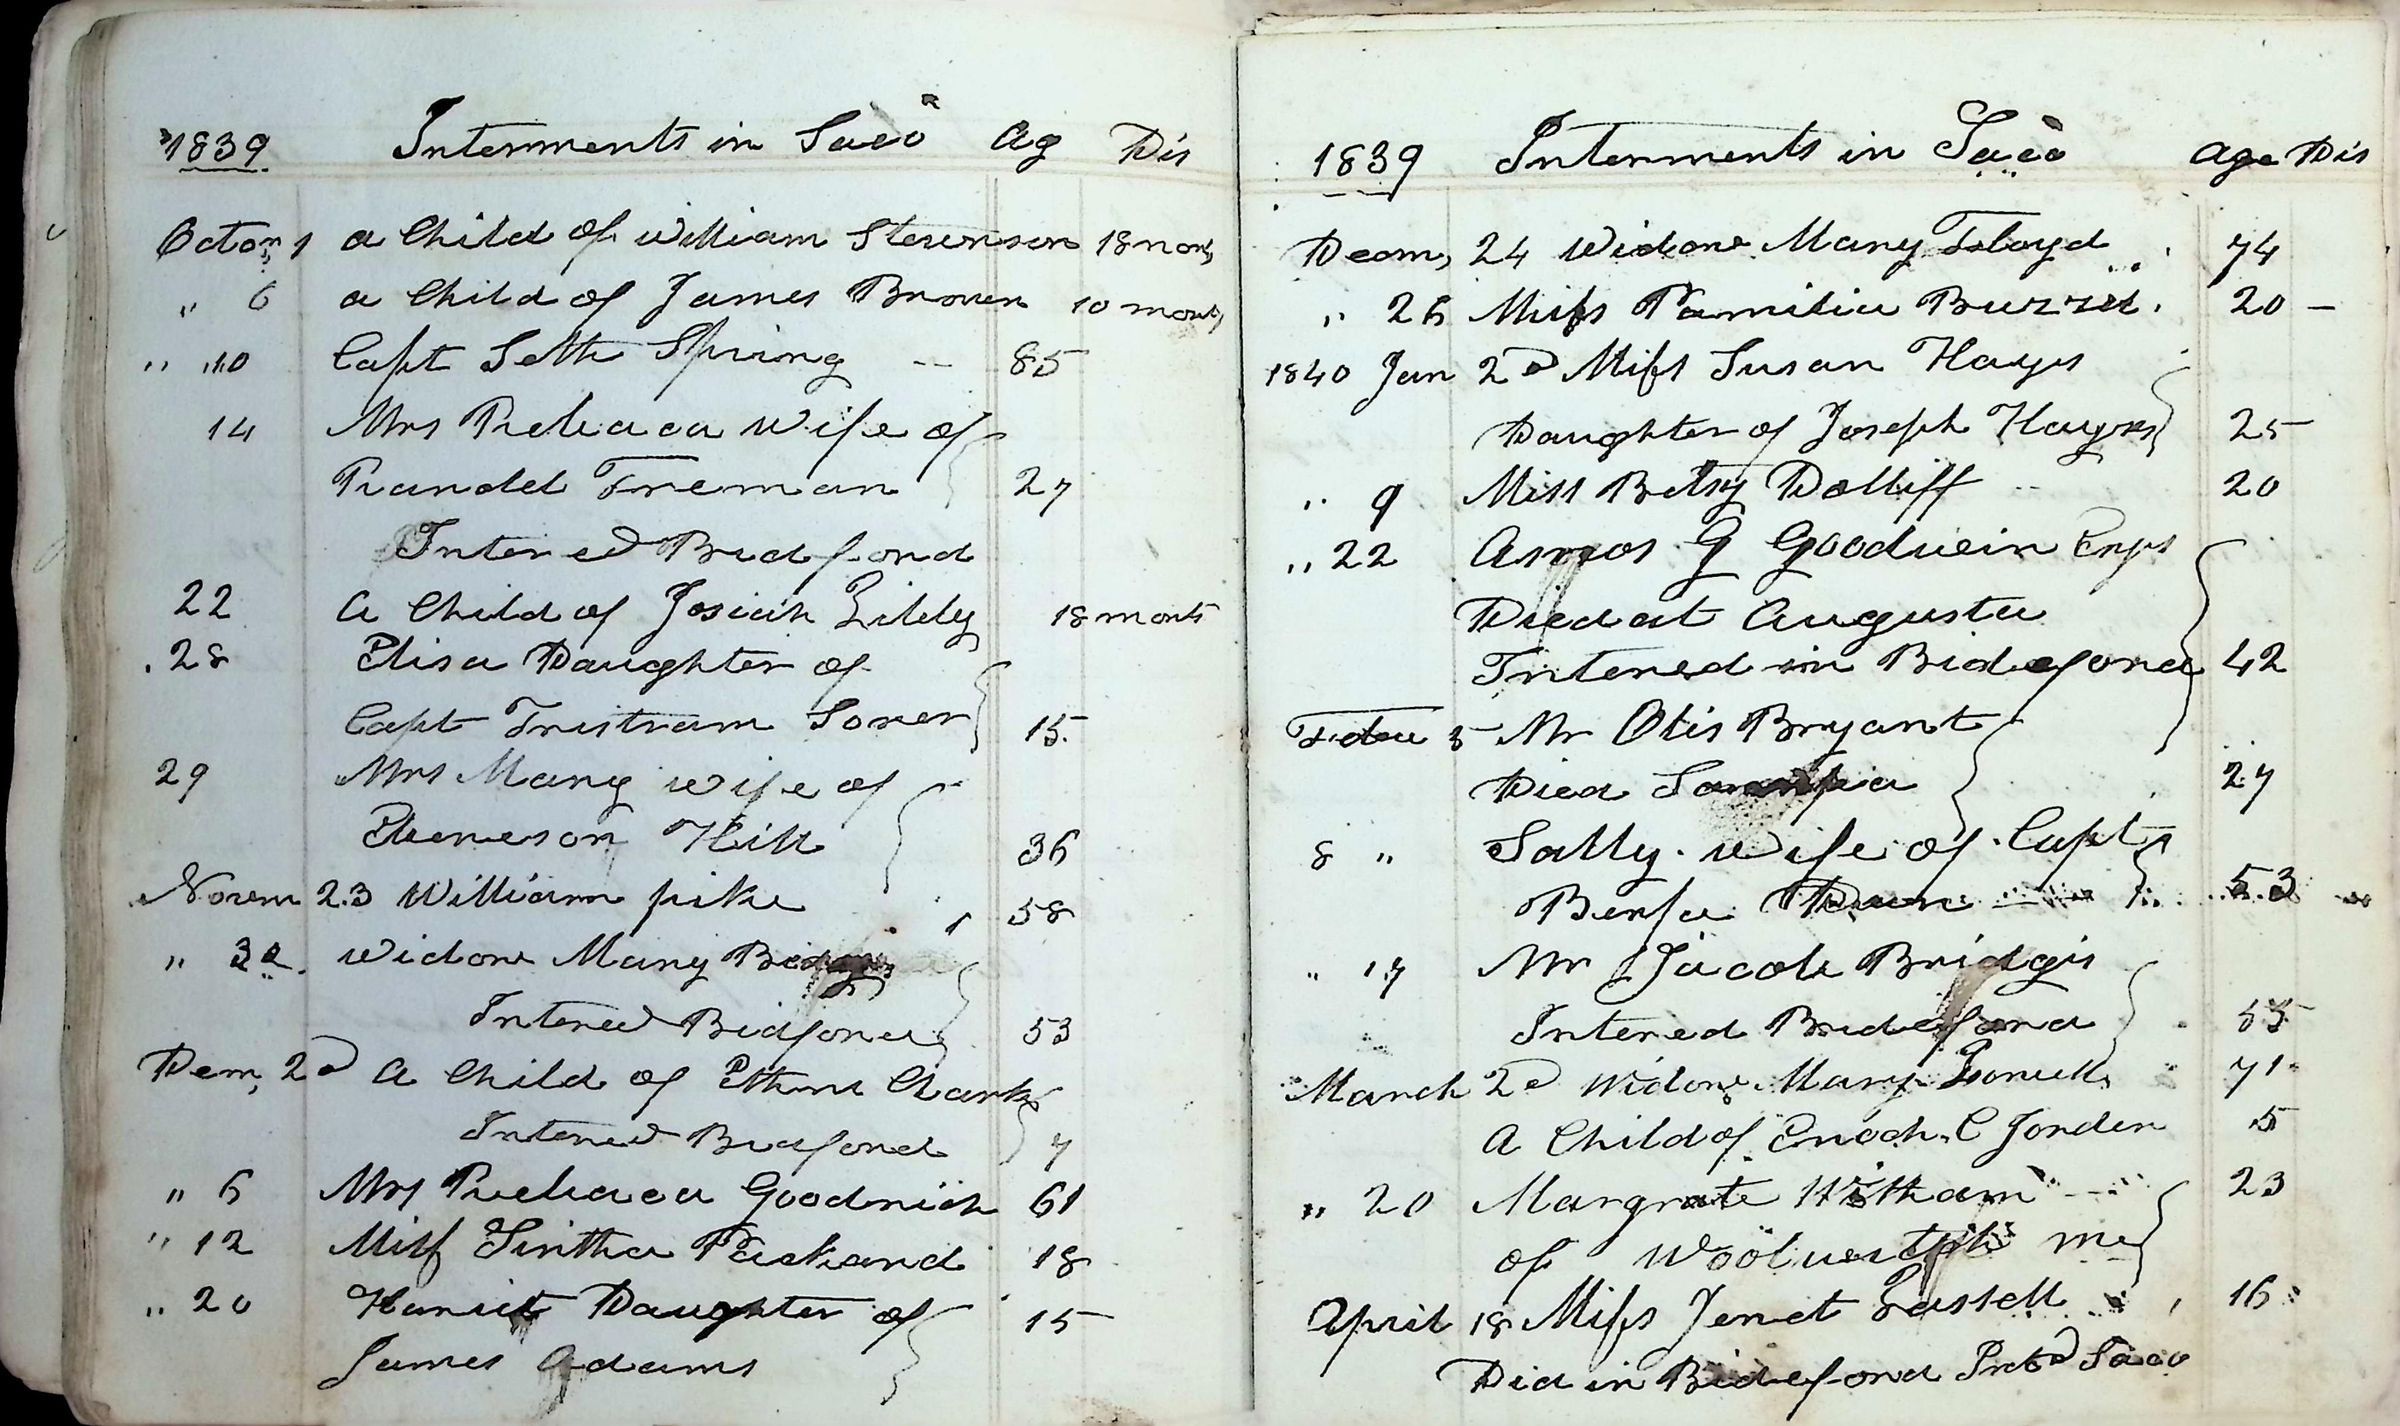 1839 Interments in Saco Ag Dis
Octom 1 a Child of William Stevenson 18 mon,
" 6 a Child of James Brown 10 mont,
" " 10 Capt Seth Spring -- 85
14 Mrs Rebacca Wife of
Randel Freman 27
Intered Bidford
22 a Child of Josiah Libby 18 monts
28 Elisa Daughter of
Capt Tristram 15
29 Mrs Mary wife of
Ebeneson Hill 36
Novem 23 William pike 58
" 30 Widow Mary
Intered Bidford 53
Dem, 2d a Child of Clark
Intered Bidford 7
" 6 Mrs Rebacca Goodrich 61
" 12 Miss Sintha Packard 18
" 20 Hariet Daughter of 15
James Adams
1839 Interments in Saco Age Dis
Decm, 24 Widow Mary Floyd 74
" 26 Miss Pamilia Buzzel 20 -
1840 Jan 2d Miss Susan Hayes
Daughter of Joseph Hayes 25
" 9 Miss Betsy Dolliff 20
" 22 Amos G Goodwin Esqr
Died at Augusta
Intered in Bideford 42
5 Mr Otis Bryant
Died 27
8 " Sally wife of Capt
53
" 17 Mr Jacob Bridgis
Intered Bideford 55
March 2d Widow Mary 71
a Child of Enoch C Jorden 5
" 20 Margrate Witham 23
of me
April 18 Miss Jenet 16
Did in Bideford Intd Saco